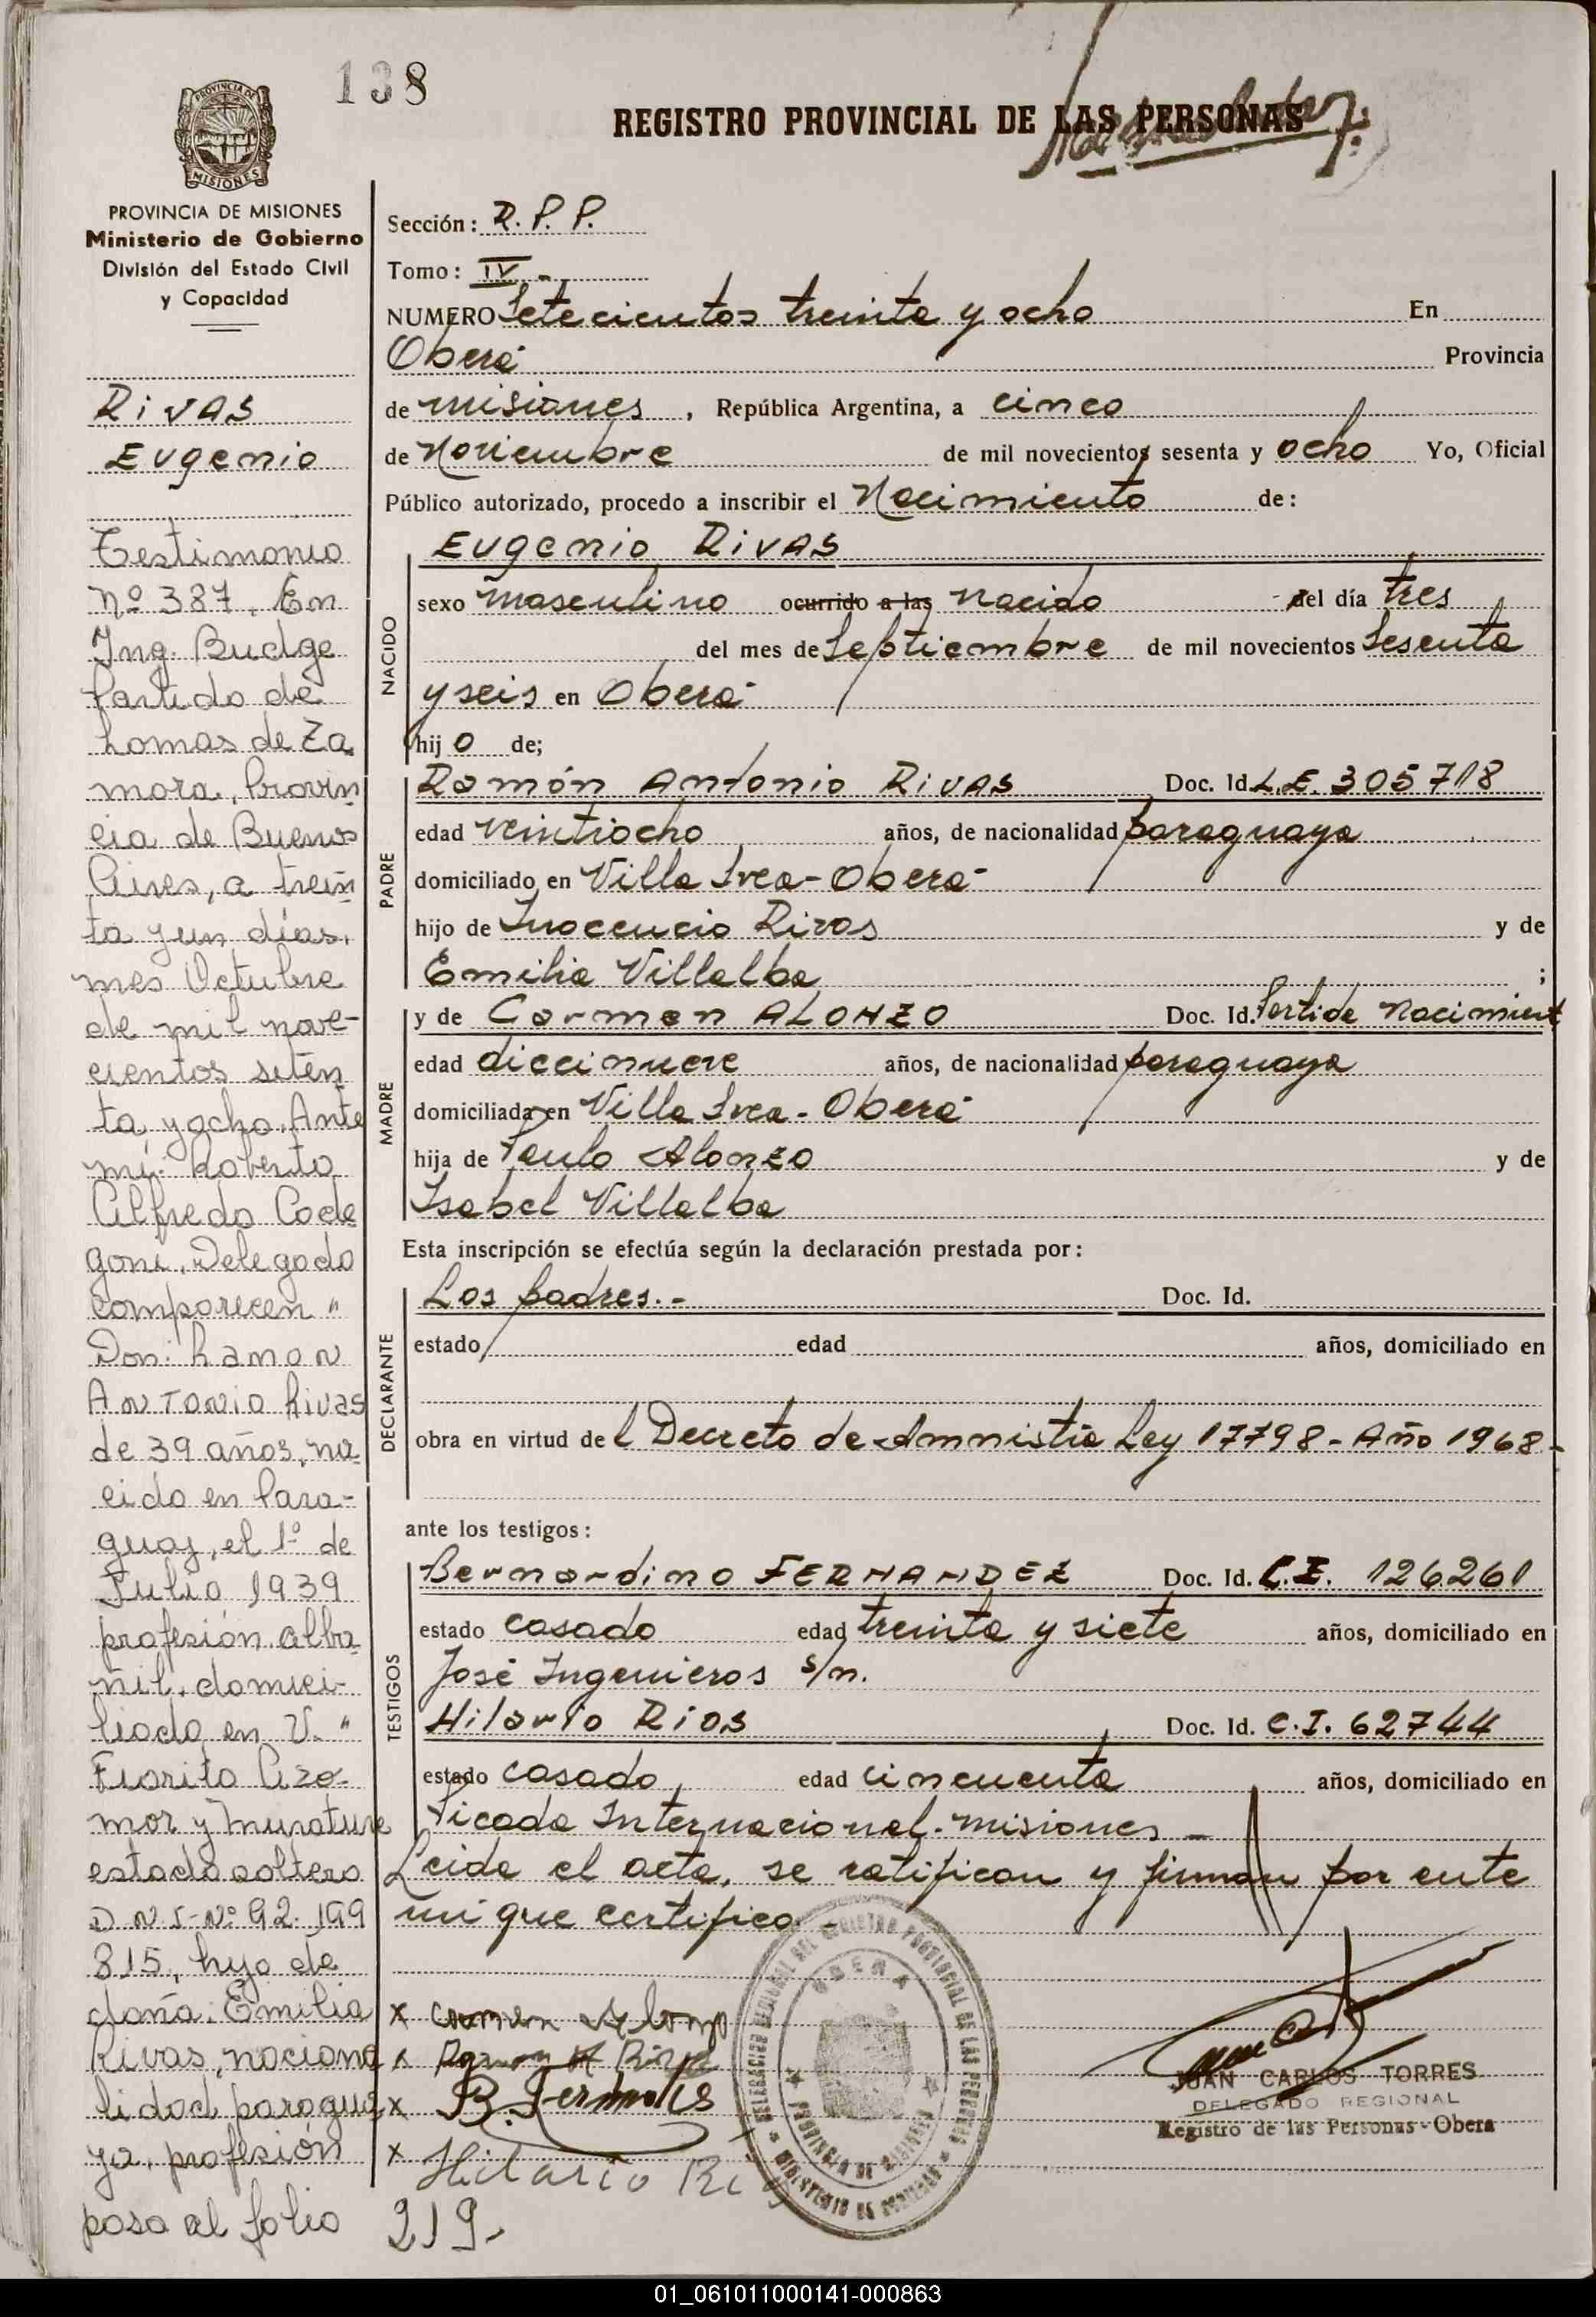 138
REGISTRO PROVINCIAL DE LAS PERSONAS
PROVINCIA DE
MISIONES
PROVINCIA DE MISIONES
Ministerio de Gobierno
División del Estado Civil
y Capacidad
RIVAS
Eugenio
Testimonio
Nº 387. En
Ing. Budge
Partido de
Lomas de Za
mora, Provin
cia de Buenos
Aires, a trein
ta y un días,
mes Octubre
de mil nove-
cientos seten
ta y ocho. Ante
mí: Roberto
Alfredo Code
goni, Delegado
comparecen "
Don: Ramon
Antonio Rivas
de 39 años, na
cido en Para-
guay, el 1º de
Julio 1939
profesión alba
ñil, domici-
liado en V. "
Fiorito Azo
mor y Murature
estado soltero
D N I - Nº 92.199
815, hijo de
doña: Emilia
Rivas, naciona
lidad paragua
ya, profesión
pasa al folio 219.
Sección: R. P. P.
Tomo: IV -
NUMERO Setecientos treinta y ocho En
Oberá Provincia
de Misiones, República Argentina, a cinco
de Noviembre de mil novecientos sesenta y ocho Yo, Oficial
Público autorizado, procedo a inscribir el Nacimiento de:
NACIDO
Eugenio RIVAS
sexo masculino ocurrido a las nacido del día tres
del mes de Septiembre de mil novecientos sesenta
y seis en Oberá
hij o de;
PADRE
Ramón Antonio RIVAS Doc. Id. L.E. 305718
edad veintiocho años, de nacionalidad paraguaya
domiciliado en Villa Svea - Oberá
hijo de Inocencio Rivas y de
Emilia Villalba ;
MADRE
y de Carmen ALONZO Doc. Id. Partida Nacimient
edad diecinueve años, de nacionalidad paraguaya
domiciliada en Villa Svea - Oberá
hija de Paulo Alonzo y de
Isabel Villalba
Esta inscripción se efectúa según la declaración prestada por:
DECLARANTE
Los padres. - Doc. Id.
estado edad años, domiciliado en
obra en virtud de l Decreto de Amnistía Ley 17798 - Año 1968 -
ante los testigos:
TESTIGOS
Bernardino FERNANDEZ Doc. Id. C.I. 126261
estado casado edad treinta y siete años, domiciliado en
José Ingenieros s/n.
Hilario Rios Doc. Id. C.I. 62744
estado casado, edad cincuenta años, domiciliado en
Picada Internacional - Misiones -
Leida el acta, se ratifican y firman por ante
mi que certifico. -
x Carmen Alonzo
x Ramon A Rivas
x B. Fernandes
x Hilario Ri
DELEGACION REGIONAL DEL REGISTRO PROVINCIAL DE LAS PERSONAS
OBERA
PROVINCIA DE MISIONES
MINISTERIO DE GOBIERNO
JUAN CARLOS TORRES
DELEGADO REGIONAL
Registro de las Personas - Obera
01_061011000141-000863